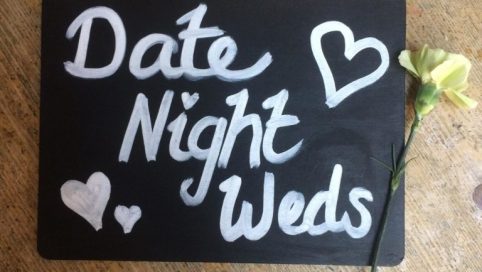 Date
Night
Weds